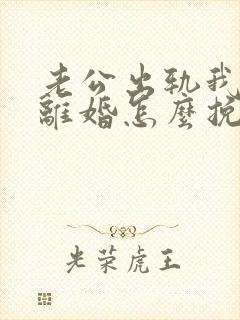 老公出轨我
離婚怎麼挽
光荣虎王